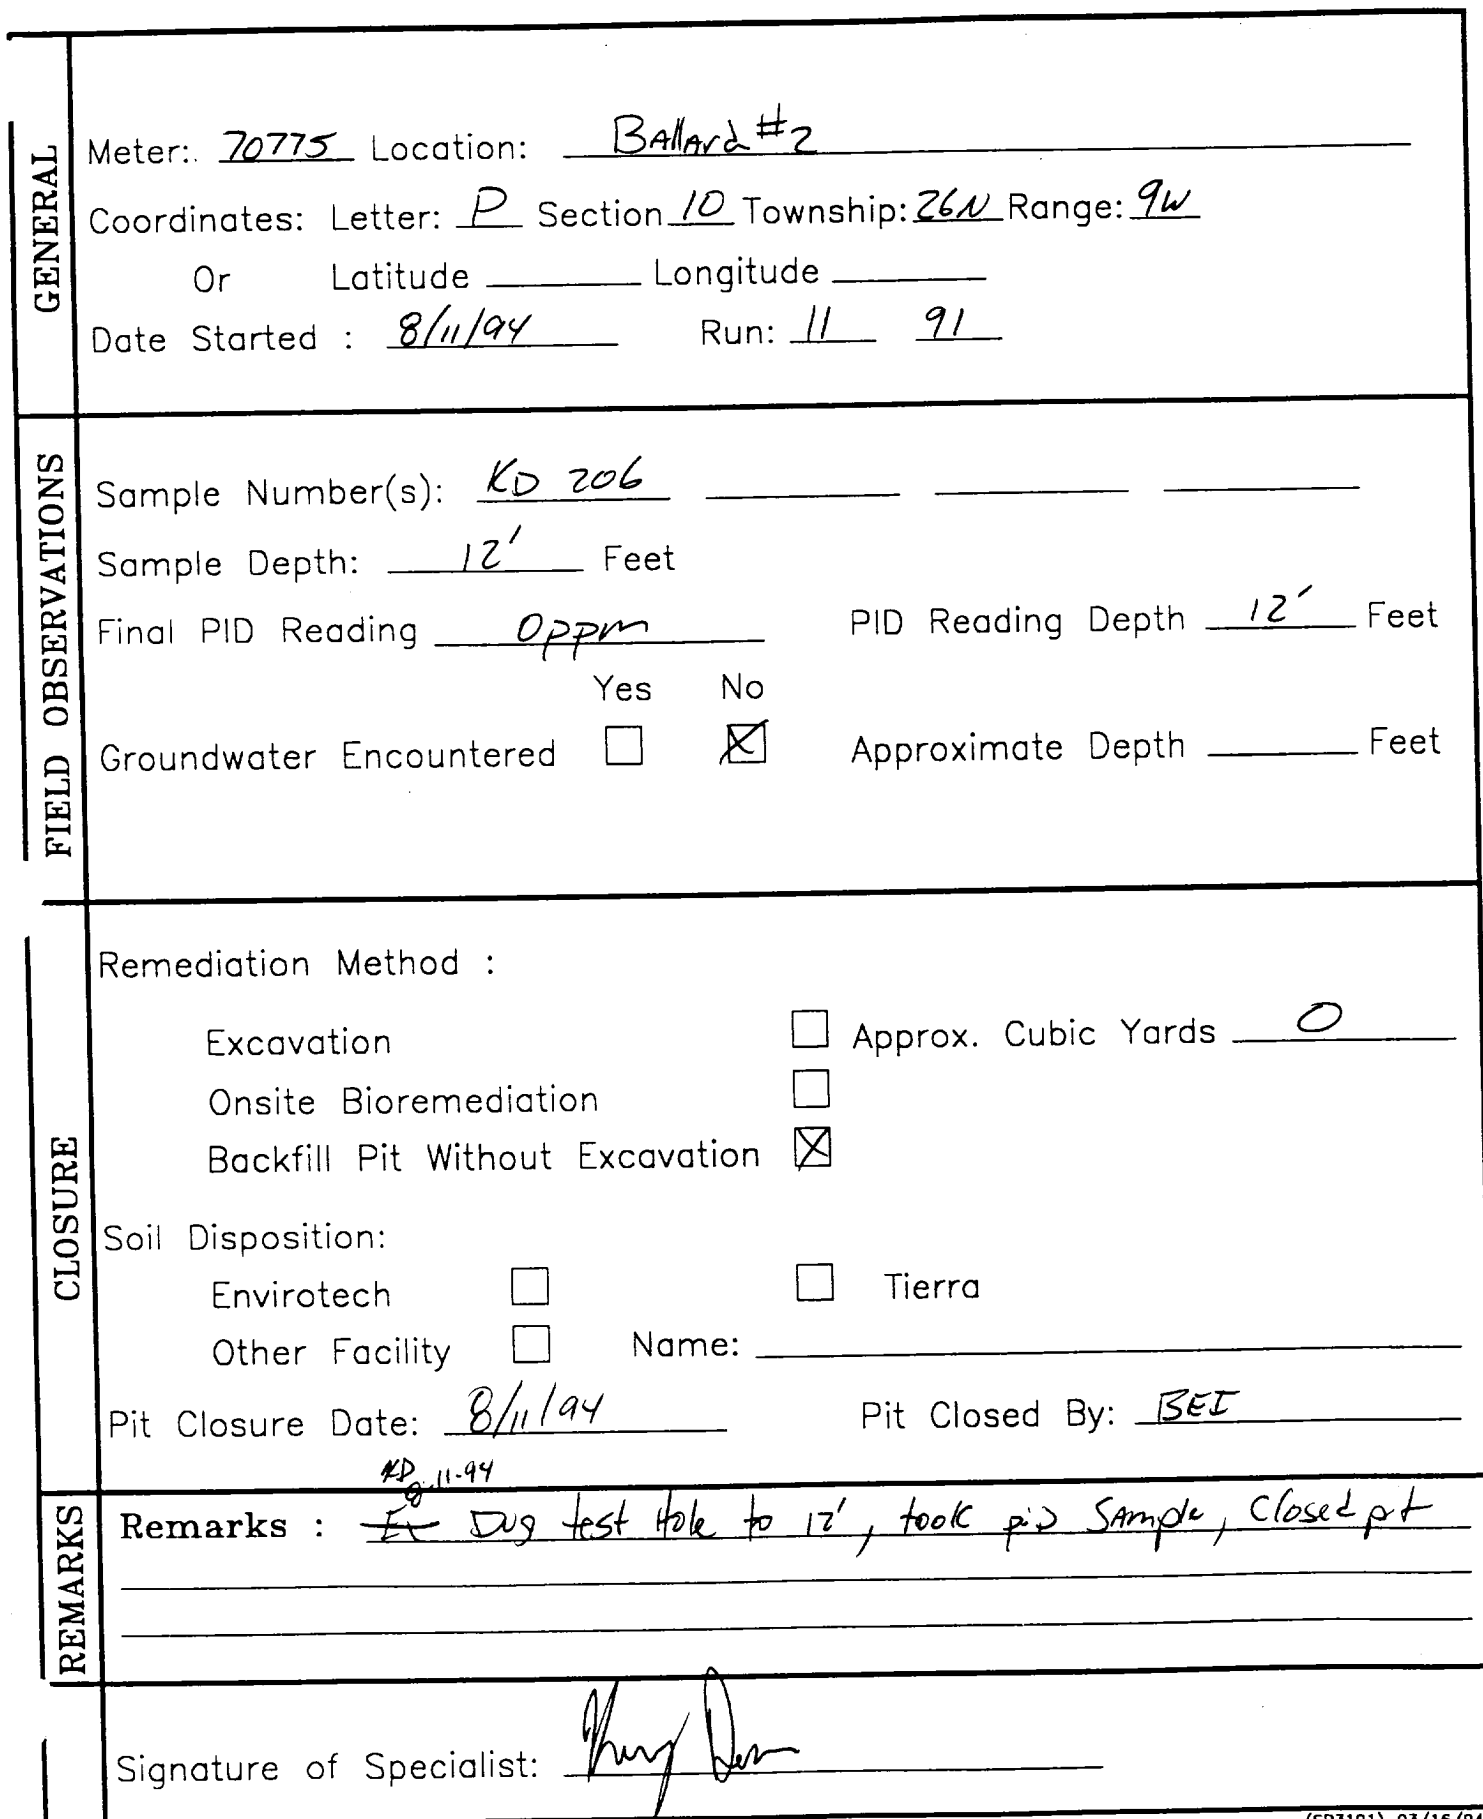 GENERAL
Meter: 70775 Location: Ballard #2
Coordinates: Letter: P Section 10 Township: 26N Range: 9W
Or Latitude Longitude
Date Started : 8/11/94 Run: 11 91
FIELD OBSERVATIONS
Sample Number(s): KD 206
Sample Depth: 12' Feet
Final PID Reading 0ppm PID Reading Depth 12' Feet
Yes No
Groundwater Encountered Approximate Depth Feet
CLOSURE
Remediation Method :
Excavation Approx. Cubic Yards 0
Onsite Bioremediation
Backfill Pit Without Excavation
Soil Disposition:
Envirotech Tierra
Other Facility Name:
Pit Closure Date: 8/11/94 Pit Closed By: BEI
KD 8-11-94
REMARKS
Remarks : Dug test Hole to 12', took pid Sample, Closed pit
Signature of Specialist: